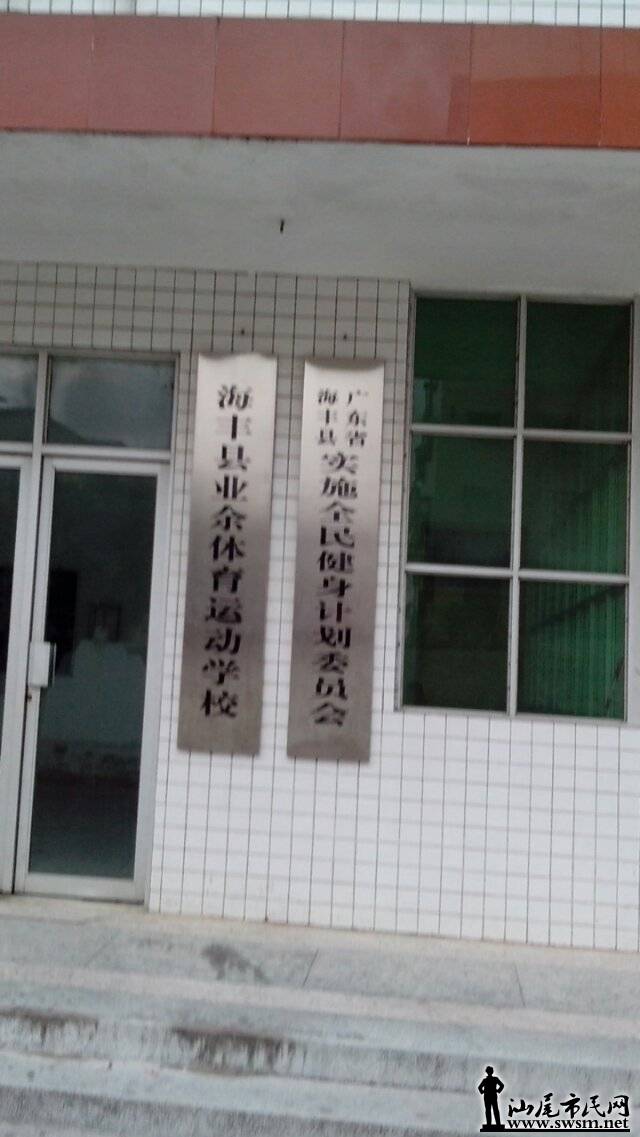 海丰县业余体育运动学校
广东省
海丰县
实施全民健身计划委员会
汕尾市民网
www.swsm.net